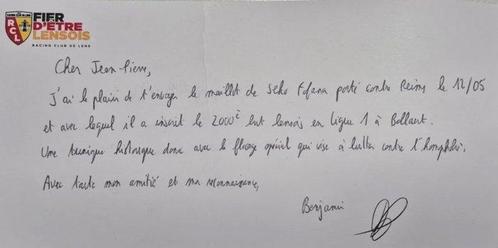 FIER
D'ÊTRE
LENSOIS
RACING CLUB DE LENS
RCL
Cher Jean-Pierre,
J'ai le plaisir de t'envoyer le maillot de Seko Fofana porté contre Reims le 12/05
et avec lequel il a inscrit le 2000e but lensois en Ligue 1 à Bollaert.
Une tunique historique donc avec le flocage spécial qui vise à lutter contre l'homophobie.
Avec toute mon amitié et ma reconnaissance,
Benjamin